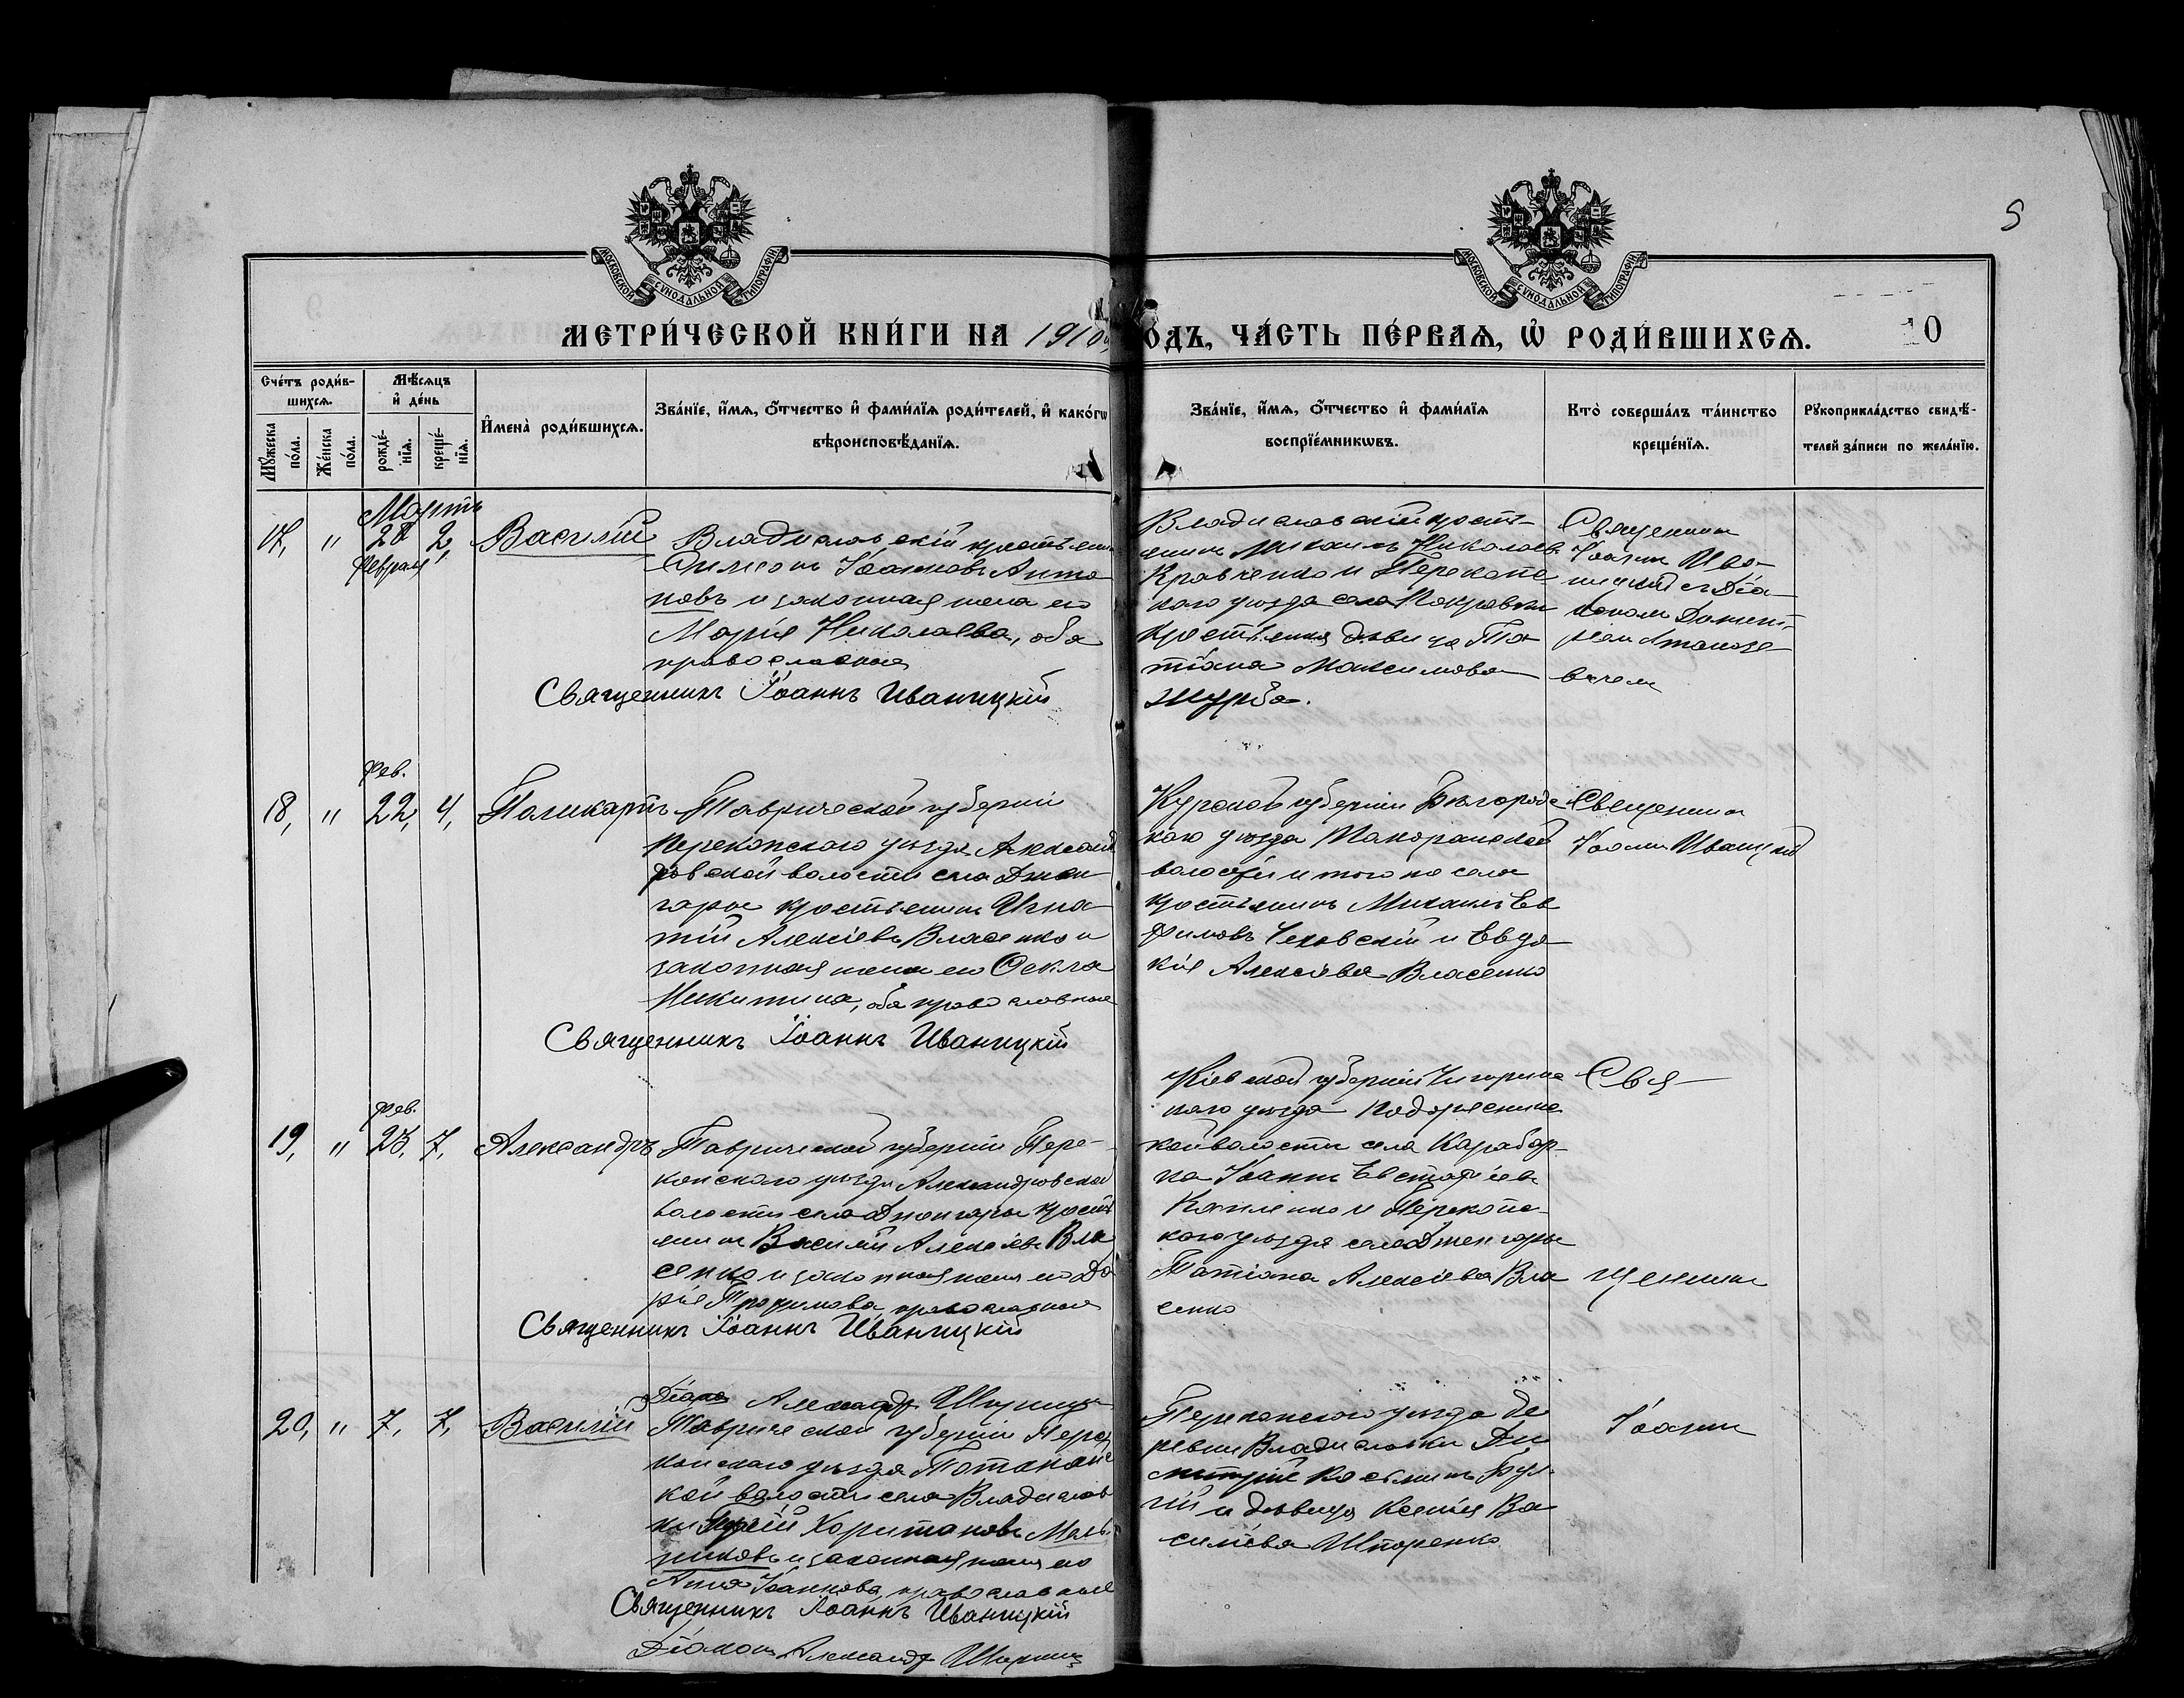 5
МОСКОВСКОЙ СУНОДАЛЬНОЙ ТИПОГРАФІИ
МОСКОВСКОЙ СУНОДАЛЬНОЙ ТИПОГРАФІИ
МЕТРИ́ЧЕСКОЙ КНИ́ГИ НА 1910 ГОДЪ, ЧА́СТЬ ПЕ́РВАЯ, Ѡ҆ РОДИ́ВШИХСЯ.
10
Сче́тъ роди́в-
шихся.
Му́жеска
по́ла.
Же́нска
по́ла.
Мѣ́сяцъ
и҆ де́нь
рожде́-
нїя.
креще́-
нїя.
И҆мена̀ роди́вшихся.
Зва́нїе, и҆́мя, ѻ҆́тчество и҆ фами́лїя роди́телей, и҆ како́гѡ
вѣроисповѣ́данїя.
Зва́нїе, и҆́мя, ѻ҆́тчество и҆ фами́лїя
воспрїе́мникѡвъ.
Кто̀ соверша́лъ та́инство
креще́нїя.
Рукоприкла́дство свидѣ́-
телей за́писи по жела́нїю.
Мартъ
17, " 28 2, Василій
Февраля
Владиславскій крестьянинъ
Симеонъ Іоанновъ Анто-
новъ и законная жена его
Марія Николаева, оба
православные
Священникъ Іоаннъ Иваницкій
Владиславскій кресть-
янинъ Михаилъ Николаев
Кравченко и Перекопс
каго уѣзда села Покровки
крестьянка дѣвица Та-
тіана Максимова
Журба.
Священникъ
Іоаннъ Ива-
ницкій с Діа-
кономъ
Фев.
18, " 22, 4, Поликарпъ
Таврической губерніи
Перекопскаго уѣзда Александ
ровской волости села Джан
гары крестьянинъ Игна-
тій Алексіевъ Власенко и
законная жена его Ѳекла
Никитина, оба православные
Священникъ Іоаннъ Иваницкій
Курской губерніи Бѣлгородс
каго уѣзда
волости и того же села
крестьянинъ Михаилъ Ев
фимовъ Чеховскій и Евдо
кія Алексіева Власенко
Священникъ
Іоаннъ Иваницкій
Фев.
19, " 23, 7, Александръ
Таврической губерніи Пере-
копскаго уѣзда Александровской
волости села Джангары кресть
янинъ Василій Алексіевъ Вла
сенко и законная жена его Да
рія Трофимова православные
Священникъ Іоаннъ Иваницкій
Діако Александр
Кіевской губерніи Чигиринс
каго уѣзда
кой волости села
на Іоаннъ Евстафіевъ
и Перекопс-
каго уѣзда села Джангары
Татіана Алексіева Вла
сенко
Свя-
щенникъ
20, " 7, 7, Василій
Таврической губерніи Пере
копскаго уѣзда
кой волости села Владислав
ки Харитоновъ Мель
никовъ и законная жена его
Анна Іоаннова, православные
Священникъ Іоаннъ Иваницкій
Діаконъ Александр
Перекопскаго уѣзда де
ревни Владиславки Ди
митрій
и дѣвица Ксенія Ва
силіева
Іоаннъ